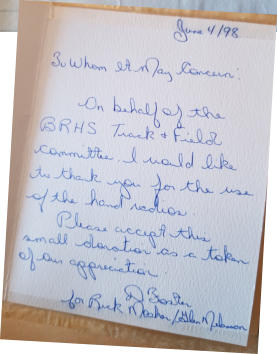 June 4/98
To Whom It May Concern:
On behalf of the
BRHS Track & Field
committee. I would like
to thank you for the use
of the hand radios.
Please accept this
small donation as a token
of our appreciation.
D Bonter
for Rick Mosher /